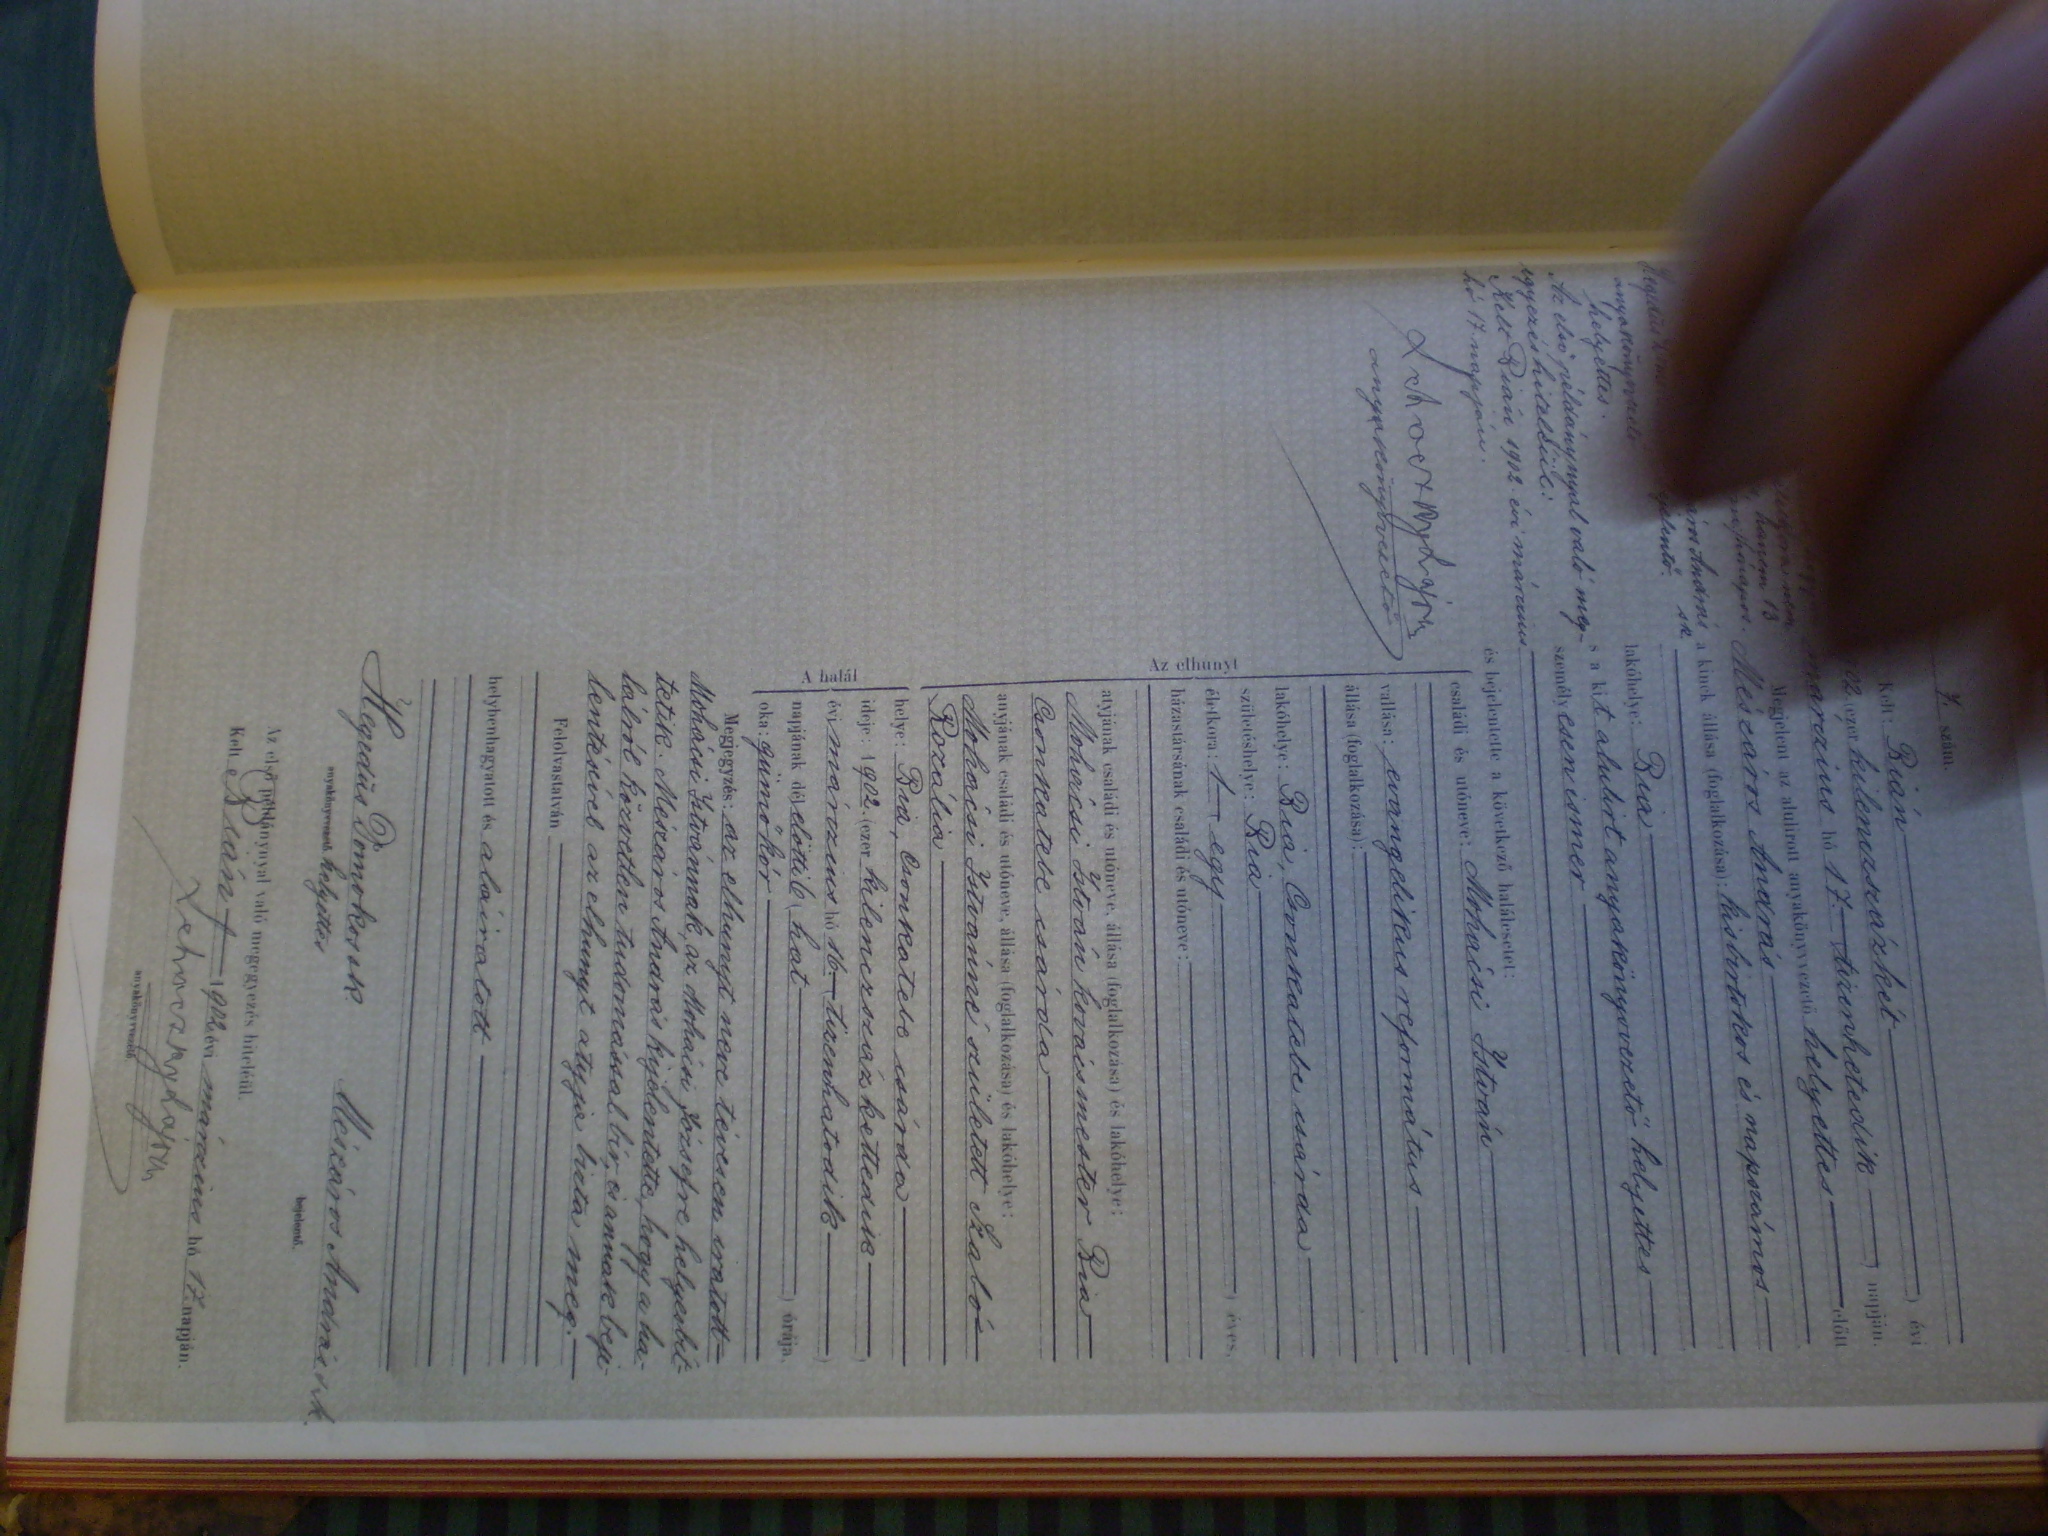 7. szám.
Kelt: Bián
kilenczszázkét ) évi
márczius hó 17 tizenhetedik ) napján.
Megjelent az alulirott anyakönyvvezető helyettes előtt
Mészáros András
a kinek állása (foglalkozása): kisbirtokos és napszámos
lakóhelye: Bia
a kit alulirt anyakönyvvezető helyettes
személyesen ismer
és bejelentette a következő halálesetet:
Az elhunyt
családi és utóneve: Mohácsi István
vallása: evangelikus református
állása (foglalkozása):
lakóhelye: Bia, Csonkatebe csárda
születéshelye: Bia
életkora: 1 egy ) éves,
házastársának családi és utóneve:
atyjának családi és utóneve, állása (foglalkozása) és lakóhelye:
Mohácsi István kovácsmester Bia
Csonkatebe csárda
anyjának családi és utóneve, állása (foglalkozása) és lakóhelye:
Mohácsi Istvánné született Szabó
Rozália
A halál
helye: Bia, Csonkatebe csárda
ideje: 1902. (ezer kilenczszázkettedik )
évi márczius hó 16 tizenhatodik )
napjának délelőtti 6 ( hat ) órája.
oka: gümőkór
Megjegyzés: az elhunyt neve tévesen iratott
Mohácsi Istvánnak, az Mohácsi Józsefre helyesbít-
tetik. Mészáros András kijelentette, hogy a ha-
lálról közvetlen tudomással bír, és annak beje-
lentésével az elhunyt atyja bízta meg.
Felolvastatván
helybenhagyatott és aláiratott
Hegedüs Domokos sk.
anyakönyvvezető helyettes
Mészáros András sk.
bejelentő.
Az első példánynyal való megegyezés hiteléül.
Kelt Bián 1902 évi márczius hó 17. napján.
anyakönyvvezető
hanem 13
Mészáros András sk.
bejelentő.
Hegedüs
anyakönyvvezető
helyettes.
Az első példánynyal való meg-
egyezés hiteléül:
Kelt Bián 1902 évi márczius
hó 17. napján.
anyakönyvvezető